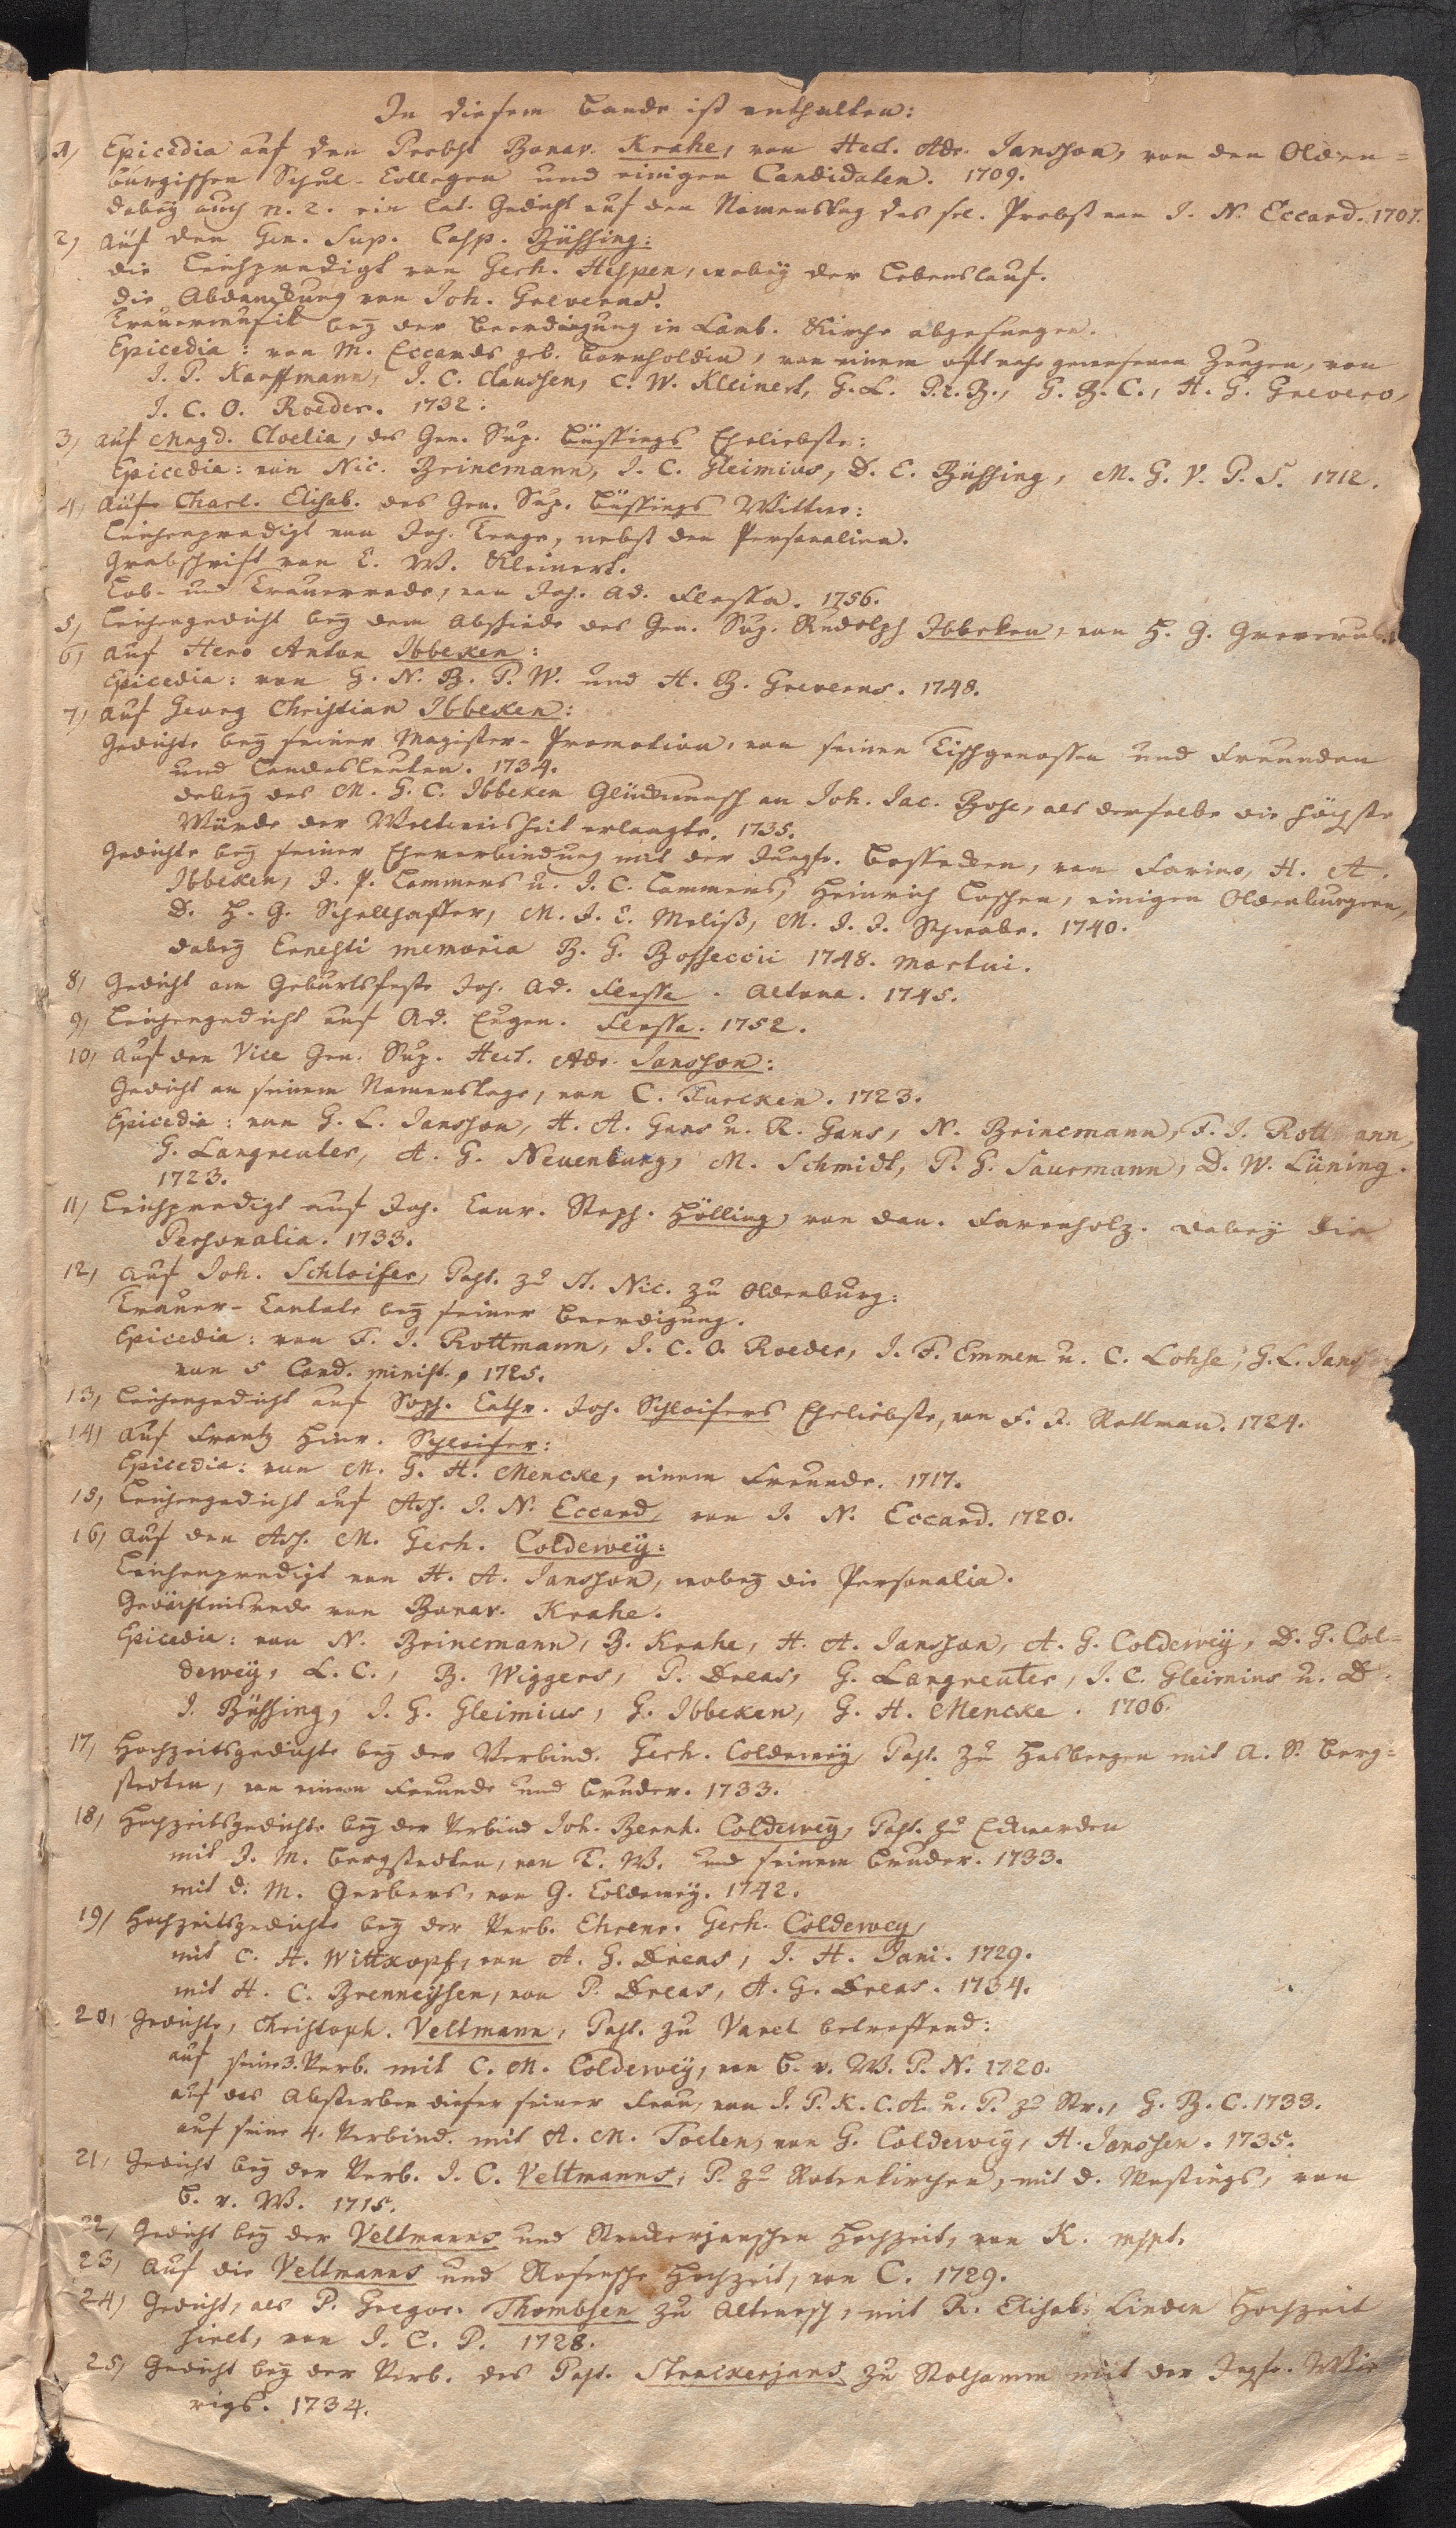 In diesem Bande ist enthalten:
1, Epicedia auf den Probst Bonav. Krahe, von Hect. Adr. Jansson, von den Olden=
burgischen Schul-Collegen und einigen Candidaten. 1709.
dabey auch n. 2. ein lat. Gedicht auf den Namenstag des sel. Probst von J. N. Eccard. 1707.
2, Auf den Gen. Sup. Casp. Büssing:
die Leichpredigt von Gerh. Hespen, wobey der Lebenslauf.
die Abdanckung von Joh. Greverus.
Trauermusik bey der Beerdigung in Lamb. Kirche abgesungen.
Epicedia: von M. Eccards geb. Bornholdin, von einem oft nahe gewesenen Zeugen, von
J. P. Kauffmann, J. C. Claussen, C. W. Kleinert, G. L. P. z. B., G. B. C., H. G. Grevero,
J. C. O. Roeder. 1732.
3, auf Magd. Cloelia, des Gen. Sup. Büssings Eheliebste:
Epicedia: von Nic. Brincmann, J. C. Gleimius, D. C. Büssing, M. G. V. P. S. 1712.
4, Auf Charl. Elisab. des Gen. Sup. Büssings Wittwe:
Leichenpredigt von Joh. Trage, nebst den Personalien.
Grabschrift von C. W. Kleinert.
Lob- und Trauerrede, von Joh. Ad. Flessa. 1756.
5, Leichengedicht bey dem Abschiede des Gen. Sup. Rudolph Ibbeken, von H. G. Greverus.
6, auf Hero Anton Ibbeken:
Epicedia: von G. N. B. P. W. und H. B. Greverus. 1748.
7, auf Georg Christian Ibbeken:
Gedichte bey seiner Magister-Promotion, von seinen Tischgenossen und Freunden
und Landesleuten. 1734.
dabey des M. G. C. Ibbeken Glückwunsch an Joh. Jac. Bose, als derselbe die höchste
Würde der Weltweisheit erlangte. 1735.
Gedichte bey seiner Eheverbindung mit der Jungfr. Bossecken, von Farino, H. A.
Ibbeken, J. P. Lammers u. J. C. Lammers, Heinrich Loschen, einigen Oldenburgern,
D. H. G. Schellhaffer, M. J. C. Meliß, M. J. J. Schwabe. 1740.
dabey Ernesti memoria B. G. Bosseccii 1748. mortui.
8, Gedicht am Geburtsfeste Joh. Ad. Flessa. Altona. 1745.
9, Leichengedicht auf Ad. Eugen. Flessa. 1752.
10, Auf den Vice Gen. Sup. Hect. Adr. Jansson:
Gedicht an seinem Namenstage, von C. Furcken. 1723.
Epicedia: von G. L. Jansson, H. A. Gans u. R. Gans, N. Brincmann, F. J. Rottmann,
G. Langreuter, A. G. Neuenburg, M. Schmidt, P. G. Saurmann, D. W. Lüning.
1723.
11, Leichpredigt auf Joh. Conr. Steph. Hölling, von Dan. Farenholz. dabey die
Personalia. 1733.
12, Auf Joh. Schloifer, Past. zu St. Nic. zu Oldenburg:
Trauer-Cantate bey seiner Beerdigung.
Epicedia: von F. J. Rottmann, J. C. O. Roeder, J. F. Emmen u. C. Lohse, G. L. Jansson
von 5 Cand. minist., 1725.
13, Leichengedicht auf Soph. Cathr. Joh. Schloifers Eheliebste, von F. J. Rottman. 1724.
14, Auf Frantz Hinr. Schloifer:
Epicedia: von M. G. H. Mencke, einem Freunde. 1717.
15, Leichengedicht auf Ass. J. N. Eccard, von J. N. Eccard. 1720.
16, Auf den Ass. M. Gerh. Coldewey:
Leichenpredigt von H. A. Jansson, wobey die Personalia.
Gedächtnisrede von Bonav. Krahe.
Epicedia: von N. Brincmann, B. Krahe, H. A. Jansson, A. G. Coldewey, D. G. Col=
dewey, L. C., B. Wiggers, P. Dreas, G. Langreuter, J. C. Gleimius u. D.
J. Büssing, J. G. Gleimius, G. Ibbeken, G. H. Mencke. 1706.
17, Hochzeitsgedichte bey der Verbind. Gerh. Coldewey, Past. zu Hasbergen mit A. S. Berg=
stedten, von einem Freunde und Bruder. 1733.
18, Hochzeitsgedichte bey der Verbind Joh. Bernh. Coldewey, Past. zu Eckwarden
mit J. M. Bergstedten, von T. W. und seinem Bruder. 1733.
mit d. M. Gerbers, von G. Coldewey. 1742.
19, Hochzeitsgedichte bey der Verb. Ehrenr. Gerh. Coldewey,
mit C. H. Wittkopf, von A. G. Dreas, J. H. Jani. 1729.
mit H. C. Brenneysen, von P. Dreas, A. G. Dreas. 1734.
20, Gedichte, Christoph. Veltmann, Past. zu Varel betreffend:
auf seine 3. Verb. mit C. M. Coldewey, von B. v. W. P. N. 1720.
auf das Absterben dieser seiner Frau, von J. P. K. C. A. u. P. zu Str., G. B. C. 1733.
auf seine 4. Verbind. mit A. M. Toelen, von G. Coldewey, H. Janssen. 1735.
21, Gedicht bey der Verb. J. C. Veltmanns, P. zu Rotenkirchen, mit d. Westings, von
B. v. W. 1715.
22, Gedicht bey der Veltmanns und Strackerjanschen Hochzeit, von K. mspt.
23, Auf die Veltmanns und Rosensche Hochzeit, von C. 1729.
24, Gedicht, als P. Gregor. Thombsen zu Altenesch, mit R. Elisab. Linden Hochzeit
hielt, von J. C. P. 1728.
25, Gedicht bey der Verb. des Past. Strackerjans zu Stolhamm mit der Jngfr. Wie
rigs. 1734.